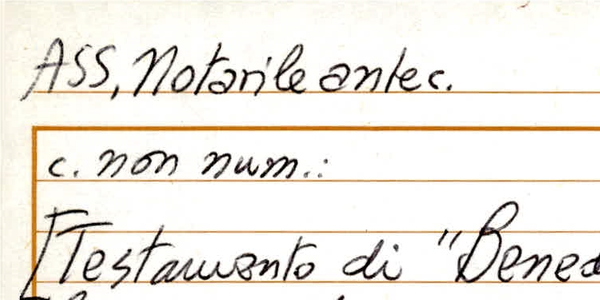 ASS, Notarile antec.
c. non num.:
[Testamento di "Bened